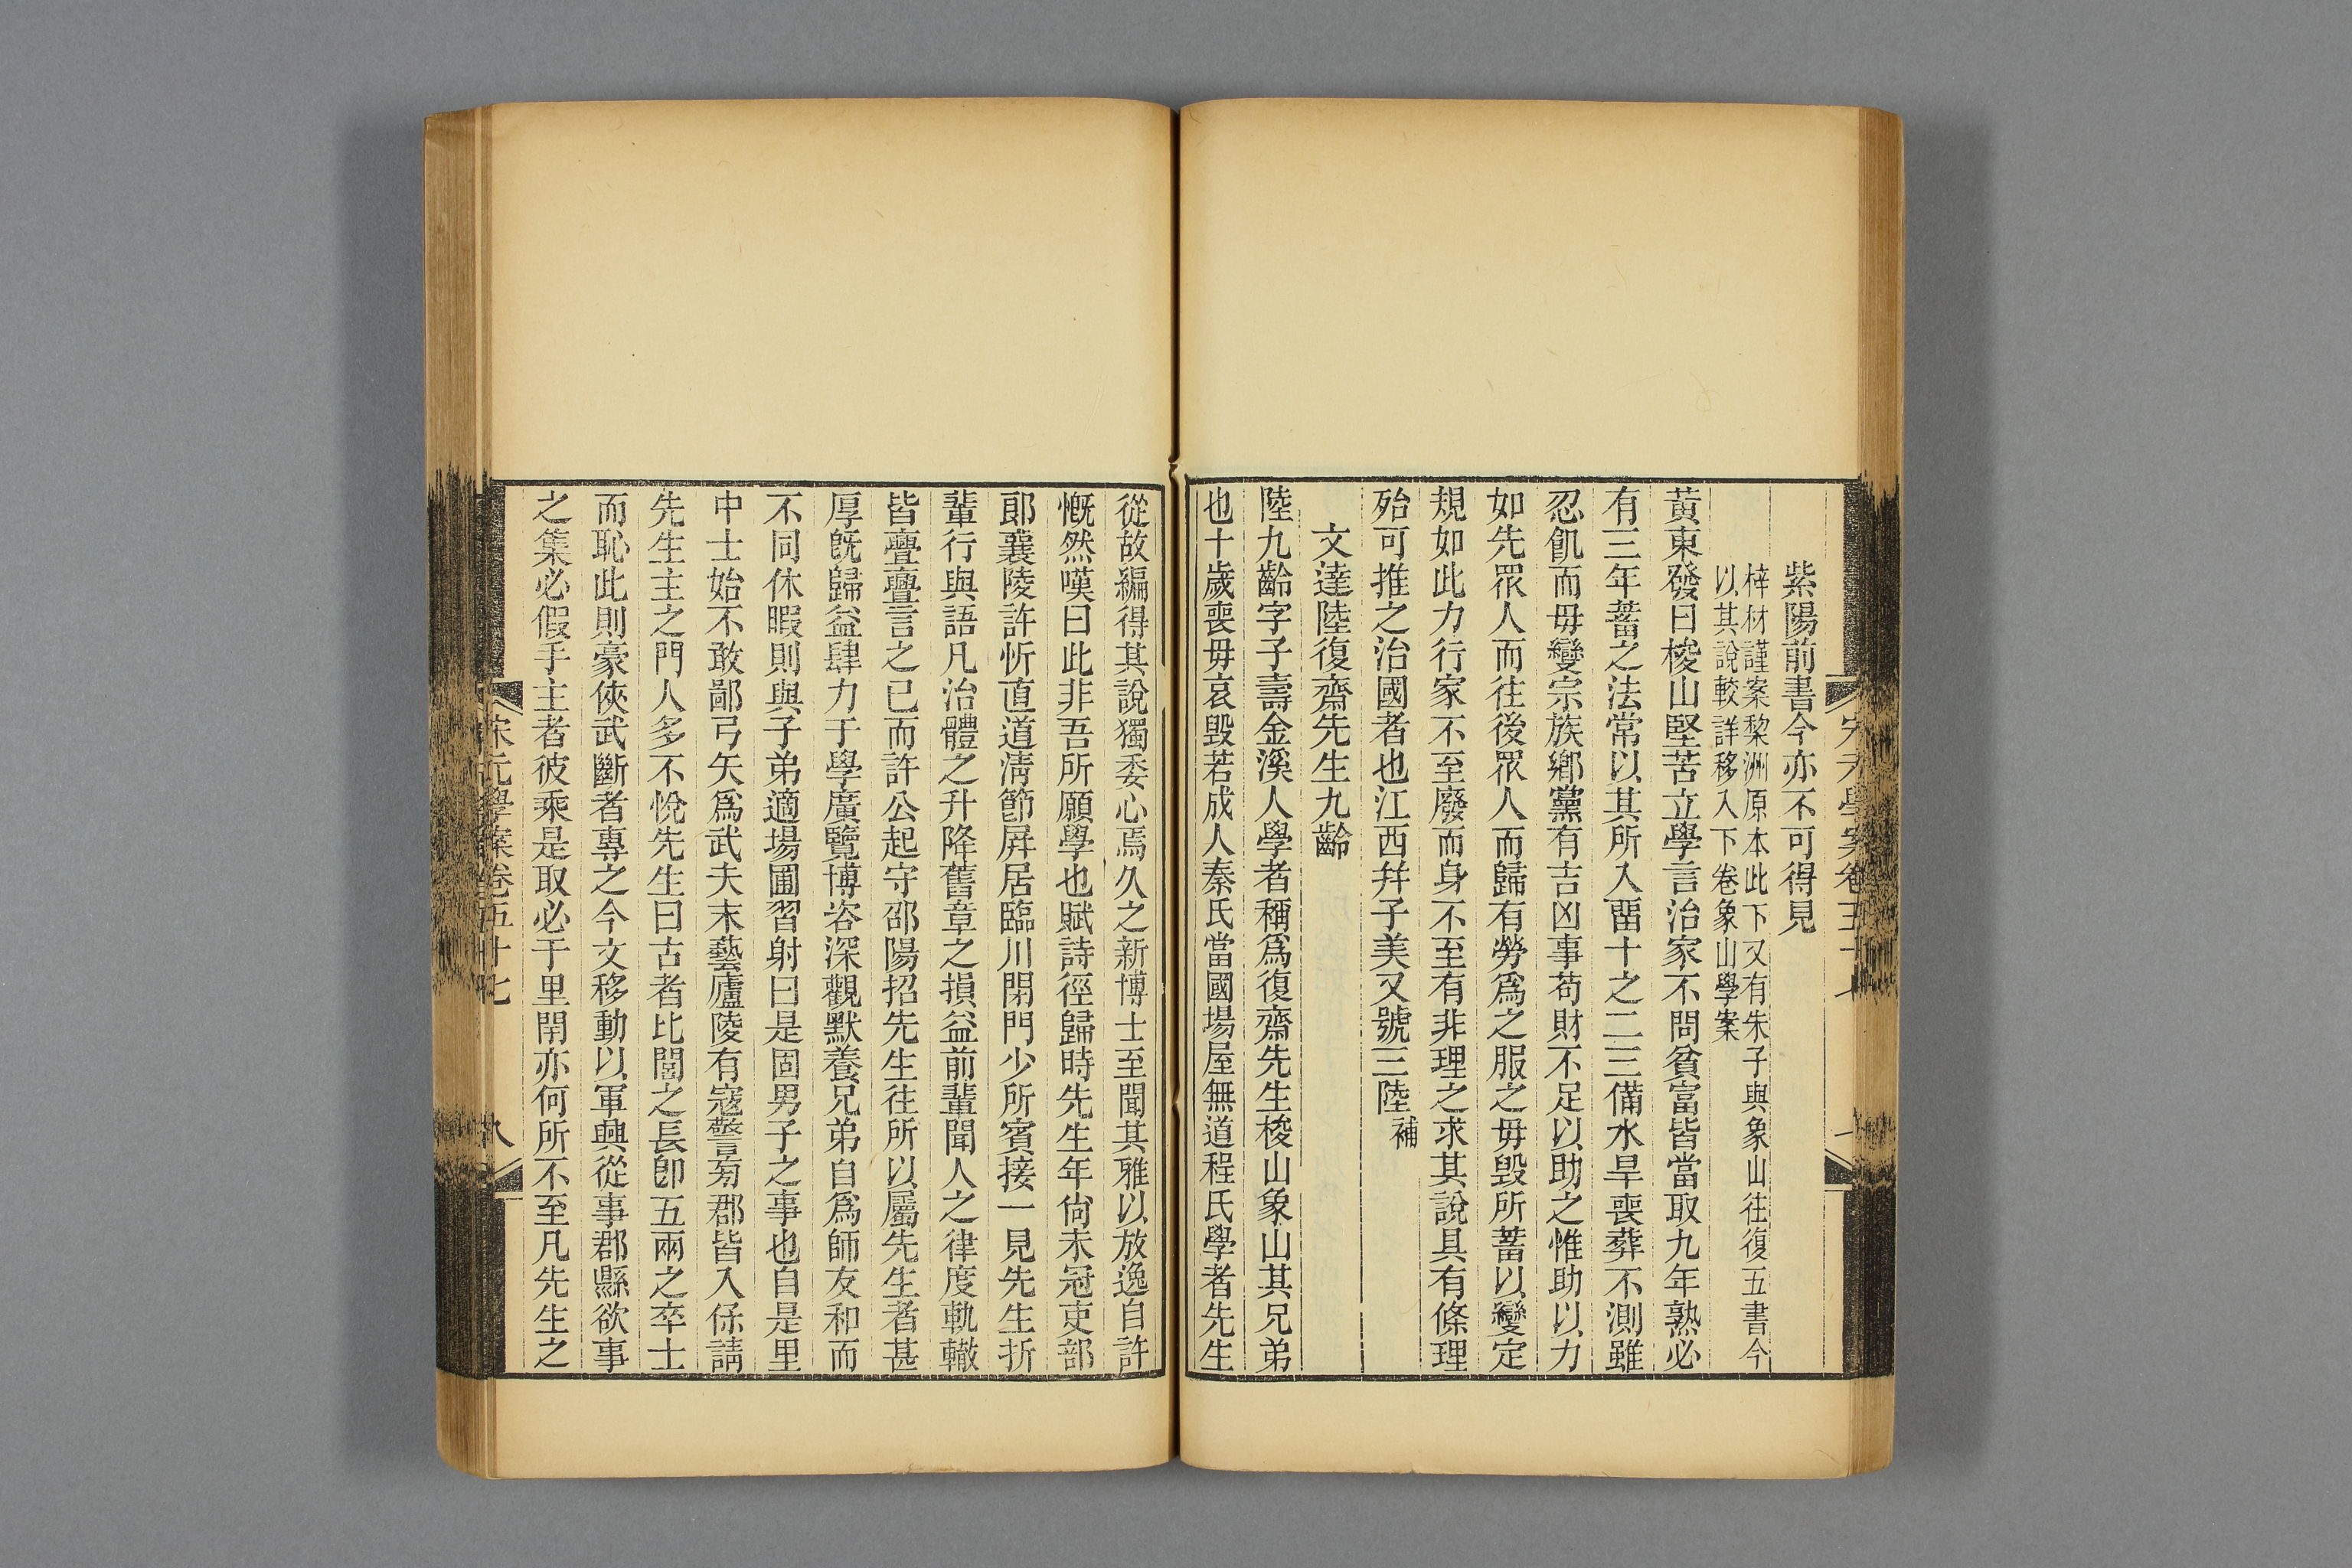 紫陽前書今亦不可得見
梓材謹案棃洲原本此下又有朱子與象山往復五書今
以其說較詳移入下卷象山學案
黃東發曰梭山堅苦立學言治家不問貧富皆當取九年熟必
有三年蓄之法常以其所入畱十之二三備水旱喪葬不測雖
忍飢而毋變宗族鄉黨有吉凶事苟財不足以助之惟助以力
如先眾人而往後眾人而歸有勞爲之服之毋毀所蓄以變定
規如此力行家不至廢而身不至有非理之求其說具有條理
殆可推之治國者也江西幷子美又號三陸補
文達陸復齋先生九齡
陸九齡字子壽金溪人學者稱爲復齋先生梭山象山其兄弟
也十歲喪毋哀毀若成人秦氏當國場屋無道程氏學者先生
從故編得其說獨委心焉久之新博士至聞其雅以放逸自許
慨然嘆曰此非吾所願學也賦詩徑歸時先生年尙未冠吏部
郞襄陵許忻直道清節屛居臨川閉門少所賓接一見先生折
輩行與語凡治體之升降舊章之損益前輩聞人之律度軌轍
皆亹亹言之已而許公起守邵陽招先生往所以屬先生者甚
厚旣歸益肆力于學廣覽博咨深觀默養兄弟自爲師友和而
不同休暇則與子弟適場圃習射曰是固男子之事也自是里
中士始不敢鄙弓矢爲武夫末藝廬陵有寇警菊郡皆入保請
先生主之門人多不悅先生曰古者比閭之長卽五兩之卒士
而恥此則豪俠武斷者專之今文移動以軍興從事郡縣欲事
之集必假手主者彼乘是取必于里閈亦何所不至凡先生之
宋元學案卷五十七
八